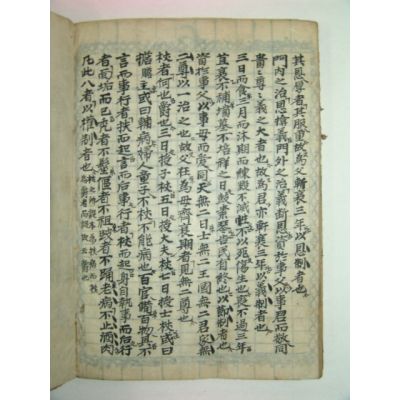 其恩厚者其服重故爲父斬衰三年以恩制者也
門內之治恩揜義門外之治義斷恩資於事父以事君而敬同
貴貴尊尊義之大者也故爲君亦斬衰三年以義制者也
三日而食三月而沐期而練毀不滅性不以死傷生也喪不過三年
苴衰不補墳墓不培祥之日鼓素琴告民有終也以節制者也
資於事父以事母而愛同天無二日土無二王國無二君家無
二尊以一治之也故父在爲母齊衰期者見無二尊也
杖者何也爵也三日授子杖五日授大夫杖七日授士杖或曰
擔主或曰輔病婦人童子不杖不能病也百官備百物具不
言而事行者扶而起言而后事行者杖而起身自執事而后行
者面垢而已禿者不髽傴者不袒跛者不踊老病不止酒肉
凡此八者以權制者也